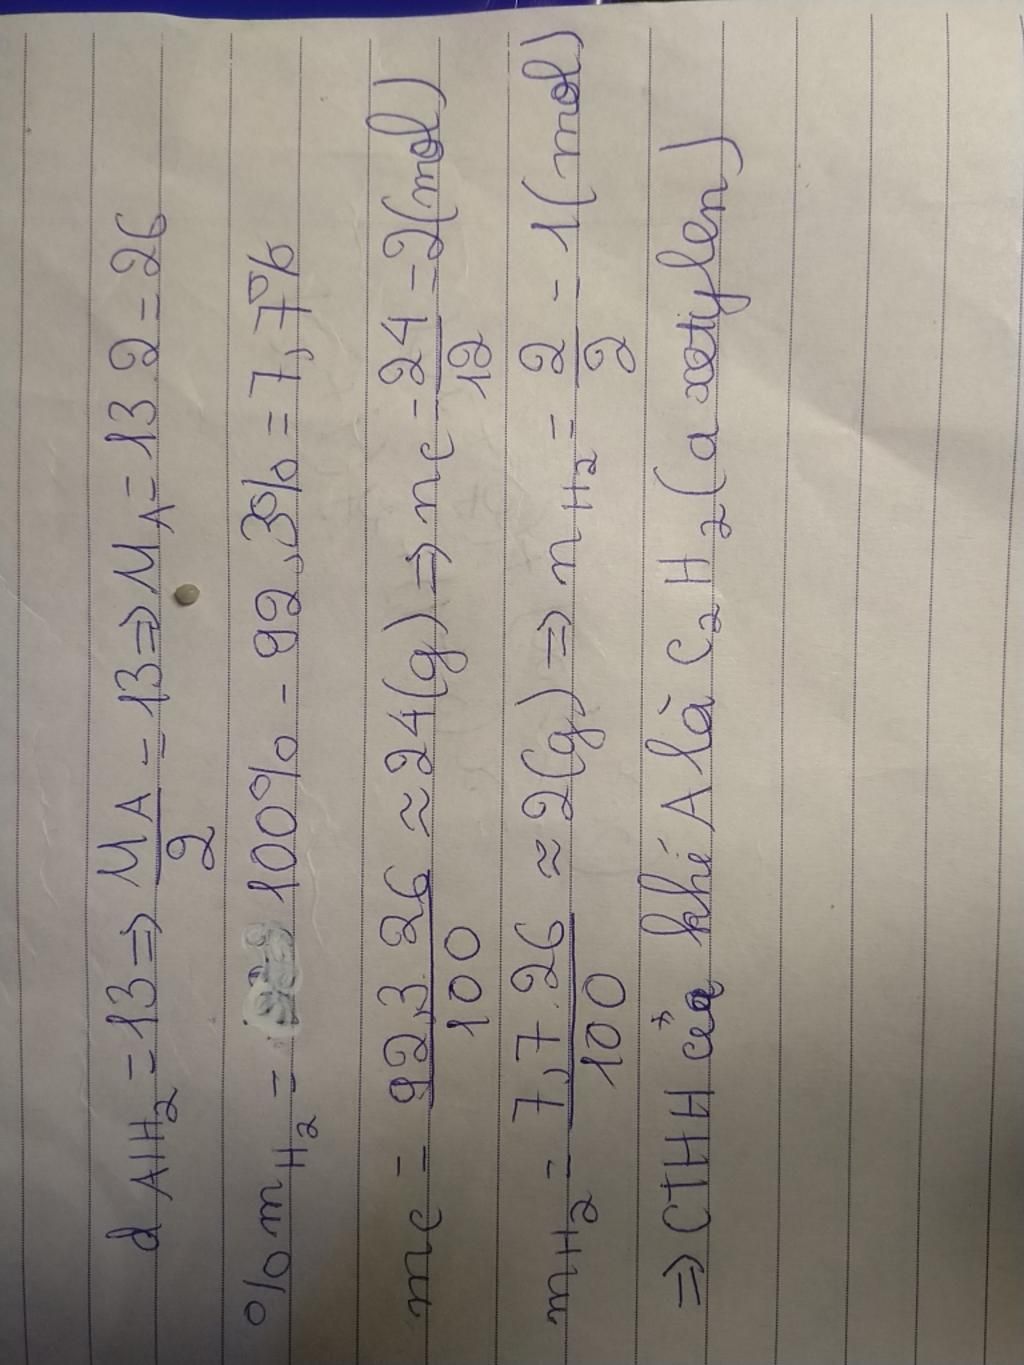 d A/H₂ = 13 => M_A/2 = 13 => M_A = 13.2 = 26
% m H₂ = 100% - 92,3% = 7,7%
m_C = 92,3.26/100 ≈ 24(g) => n_C = 24/12 = 2(mol)
m H₂ = 7,7.26/100 ≈ 2(g) => n H₂ = 2/2 = 1(mol)
=> CTHH của khí A là C₂H₂(axetylen)